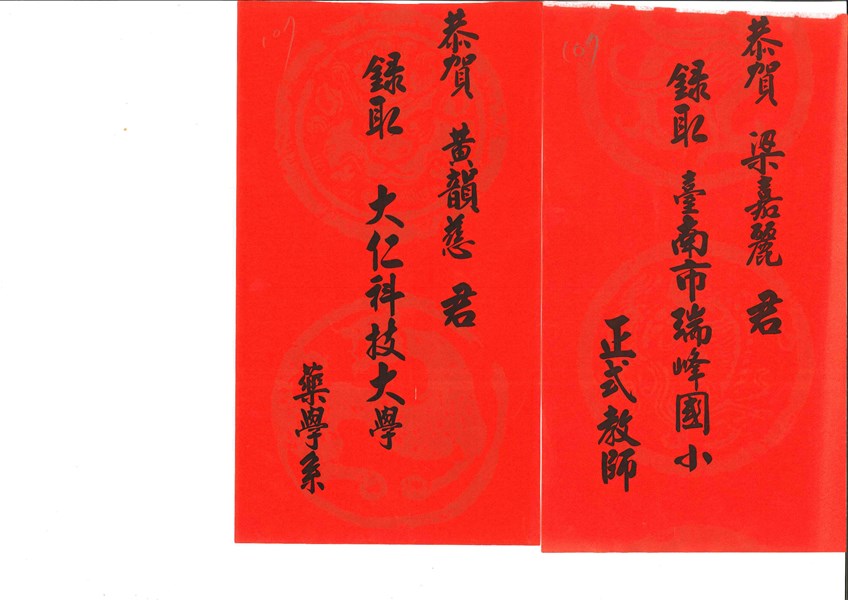 恭賀 梁嘉麗 君
錄取 臺南市瑞峰國小
正式教師
107
恭賀 黃韻慈 君
錄取 大仁科技大學
藥學系
107